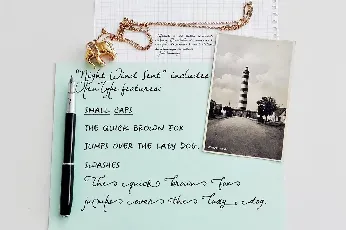 "Night Wind Sent" includes
OpenType features:
SMALL CAPS
THE QUICK BROWN FOX
JUMPS OVER THE LADY DOG.
SWASHES
The quick brown fox
jumps over the lazy dog.